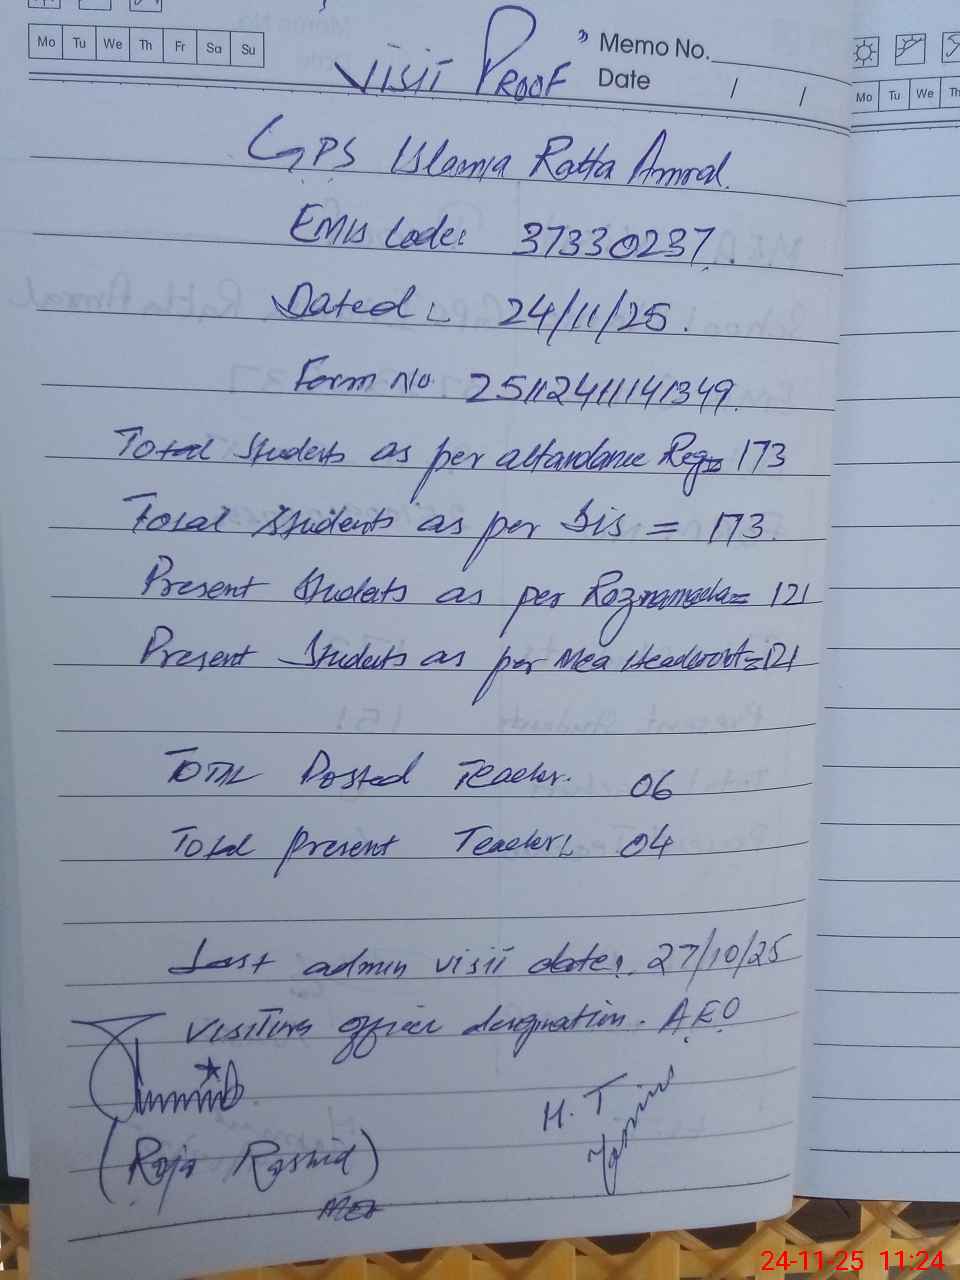 Mo Tu We Th Fr Sa Su
Memo No.
Date / /
Visit Proof
GPS Islamia Ratta Amral.
EMIS Code: 37330237.
Dated: 24/11/25.
Form No 25112411141349.
Total Students as per attandance Reg= 173
Total Students as per Sis = 173.
Present Students as per Roznamcha= 121
Present Students as per Mea Headcount=121
Total Posted Teacher. 06
Total present Teacher: 04
Last admin visit date: 27/10/25
Visiting officer designation. A.E.O
H.T
(Raja Rashid)
MEA
Mo Tu We Th
24-11-25 11:24